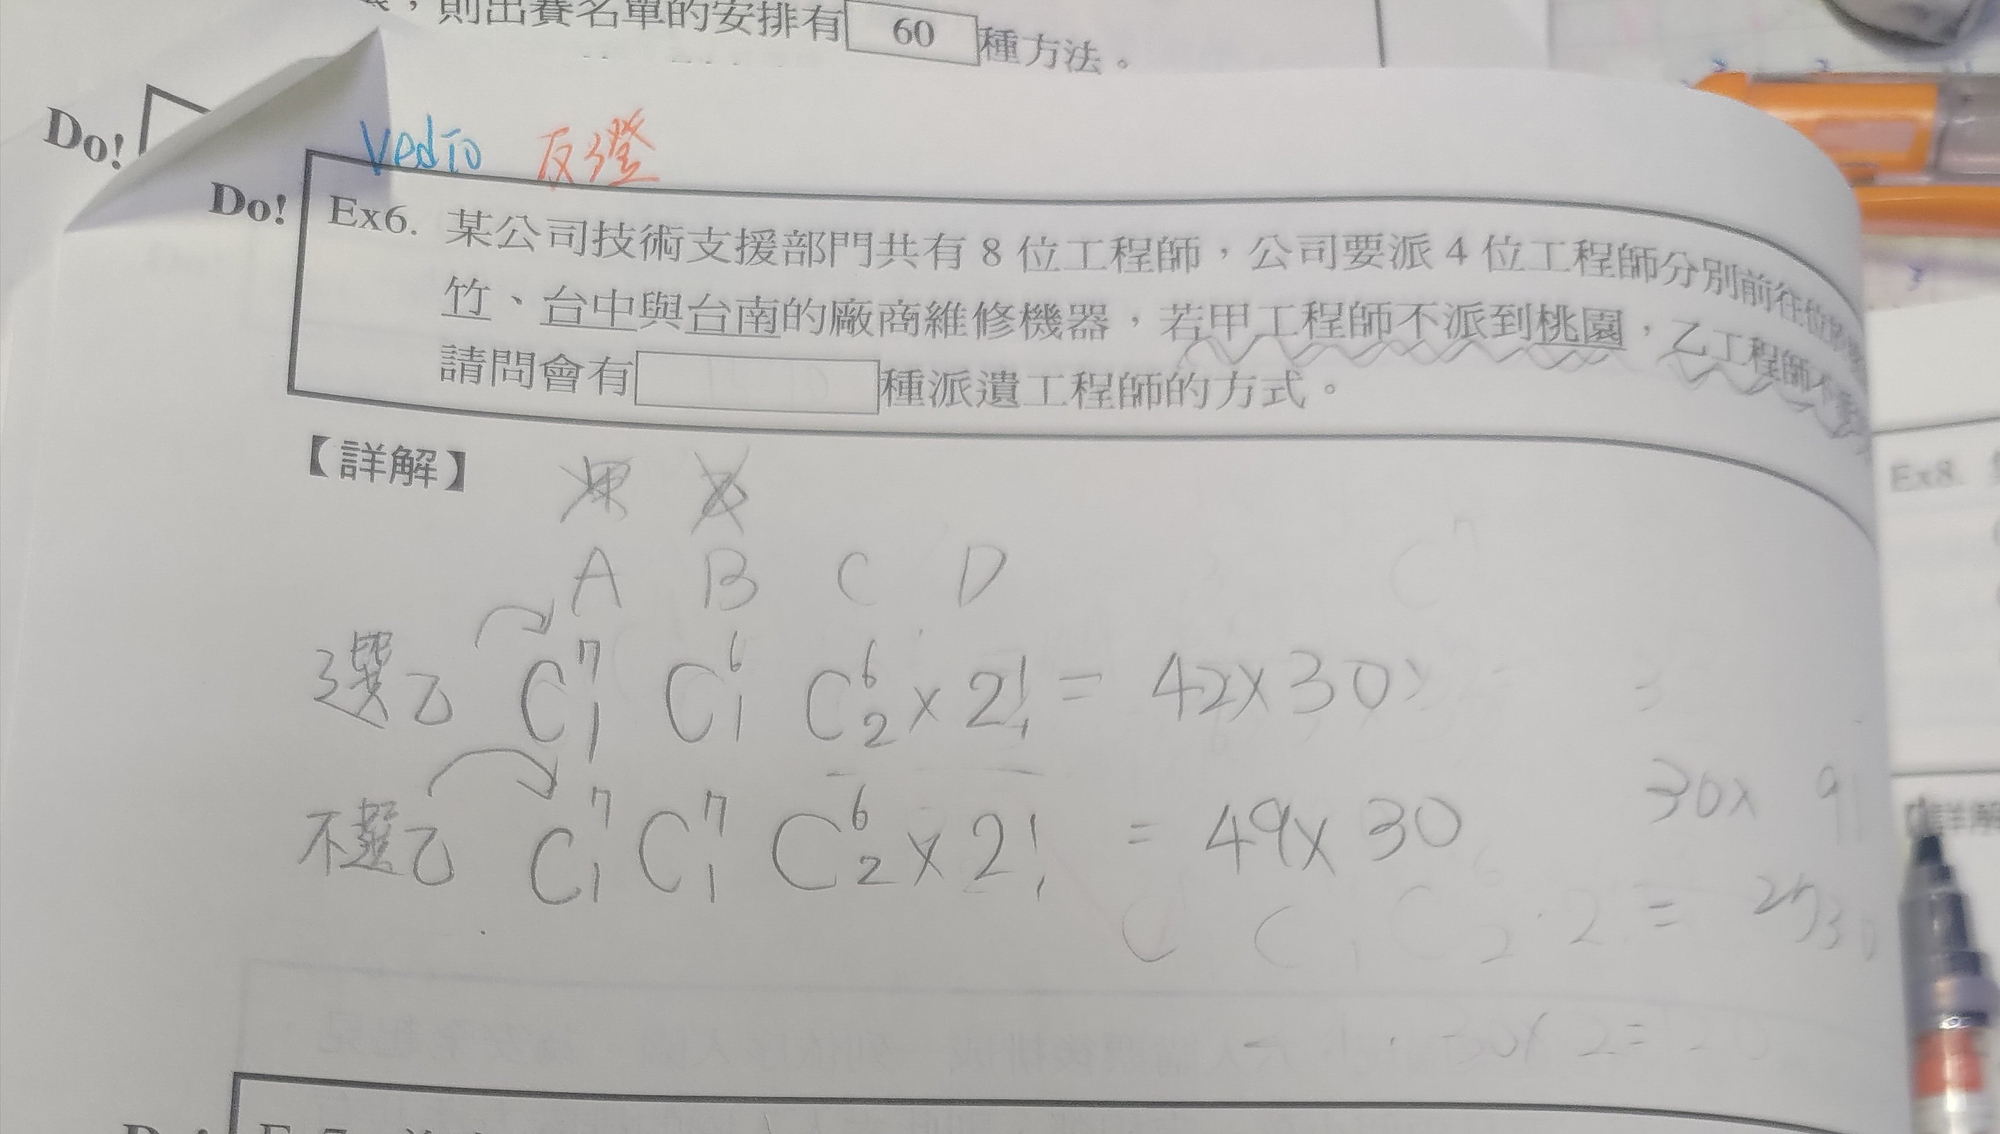 ，則出賽名單的安排有 60 種方法。
Do!
Vedio 反證
Do! Ex6. 某公司技術支援部門共有 8 位工程師，公司要派 4 位工程師分別前往位
竹、台中與台南的廠商維修機器，若甲工程師不派到桃園，乙工程師不
請問會有 種派遣工程師的方式。
【詳解】 甲 乙
A B C D
選乙 C⁷₁ C⁶₁ C⁶₂ × 2! = 42×30
30× 91
不選乙 C⁷₁ C⁷₁ C⁶₂ × 2! = 49×30
Ex8.
詳解